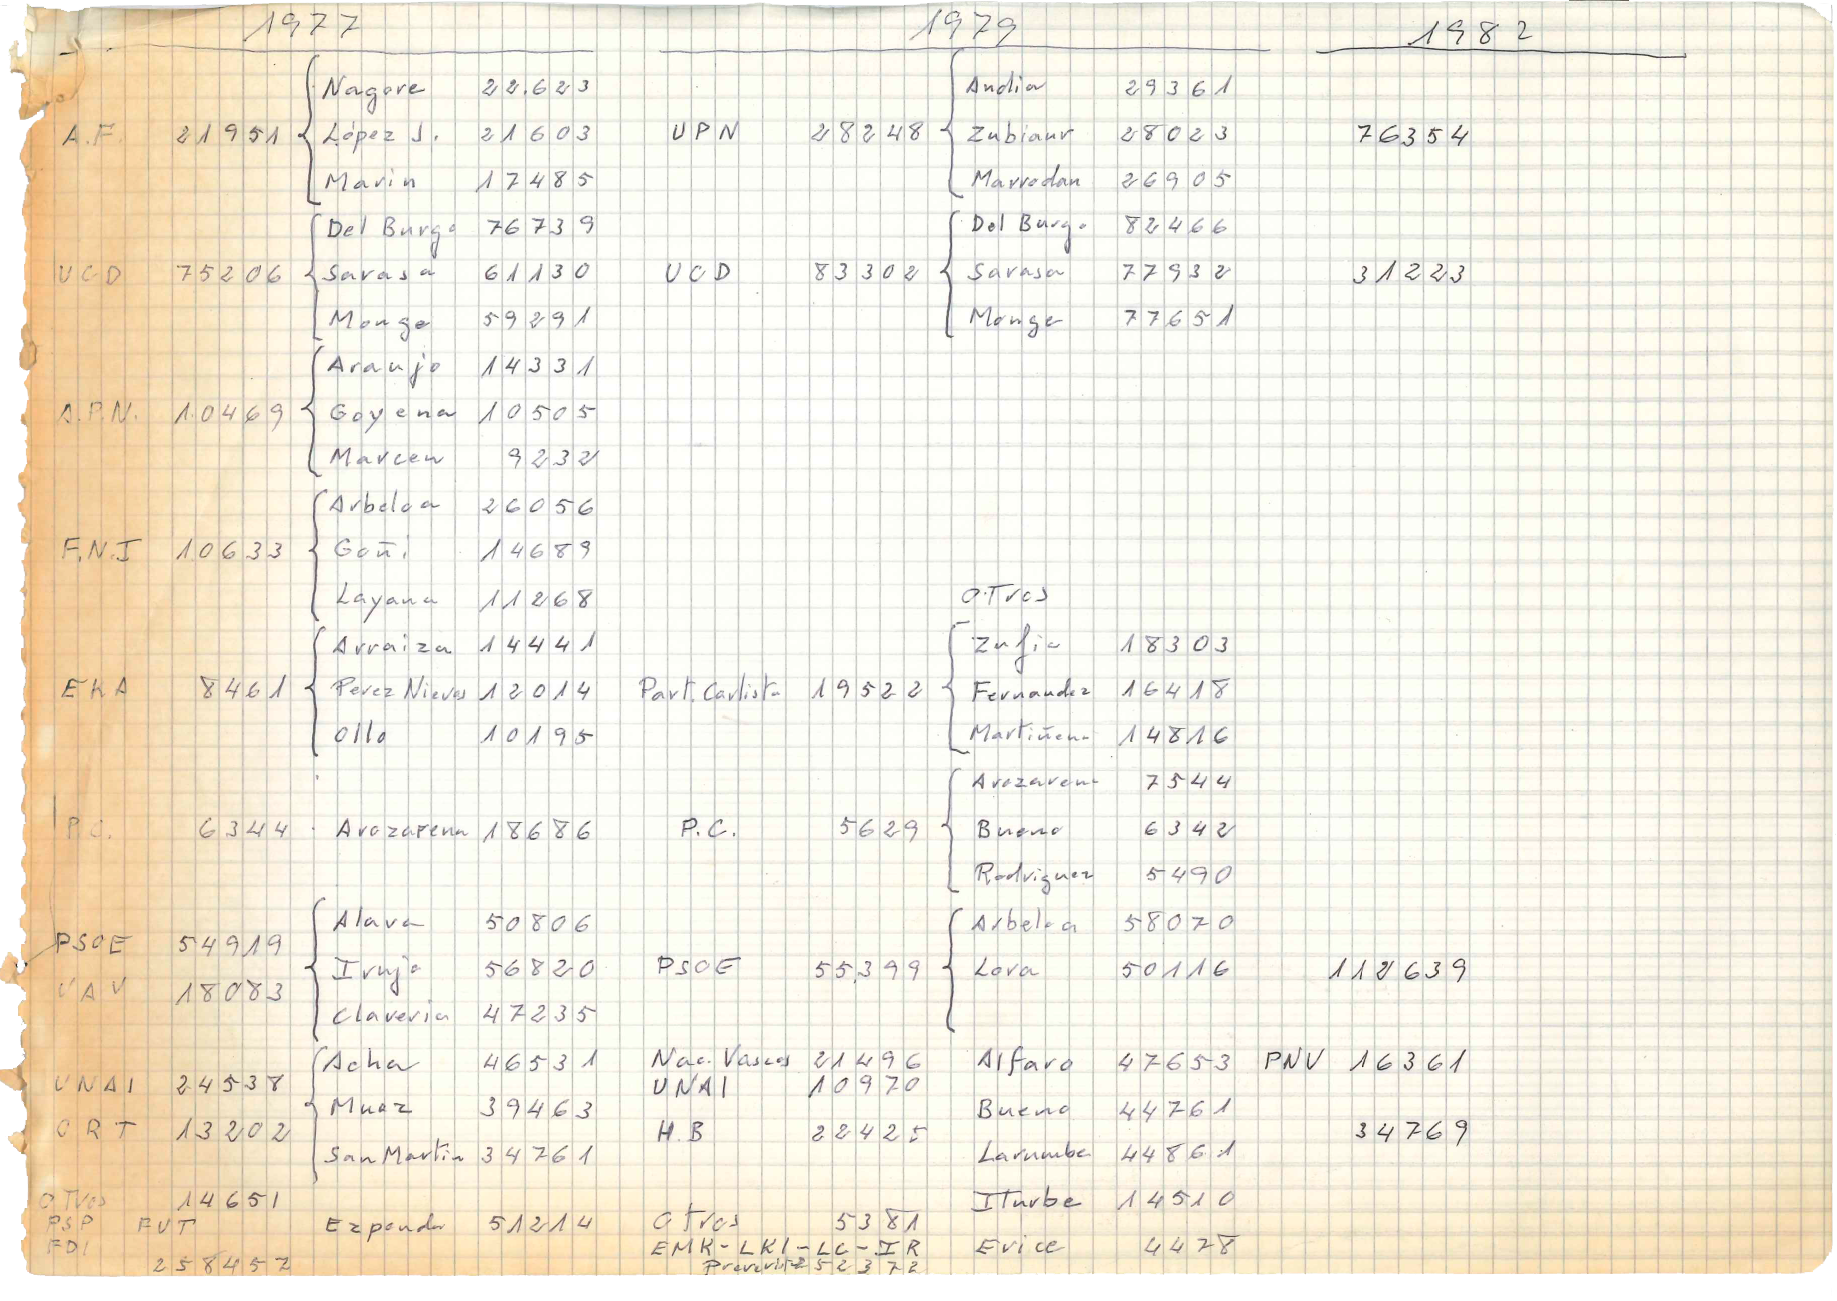 1977 1979 1982
Nagore 22.623 Andia 29361
A.F. 21951 López J. 21603 UPN 28248 Zubiaur 28023 76354
Marin 17485 Marrodan 26905
Del Burgo 76739 Del Burgo 82466
UCD 75206 Sarasa 61130 UCD 83302 Sarasa 77932 31223
Monge 59291 Monge 77651
Araujo 14331
A.P.N. 10469 Goyena 10505
Marcen 9232
Arbeloa 26056
F.N.I 10633 Goñi 14689
Layana 11268 OTros
Arraiza 14441 Zufia 18303
EKA 8461 Perez Nievas 12014 Part. Carlista 19522 Fernandez 16418
Ollo 10195 Martiñena 14816
Arozarena 7544
P.C. 6344 Arozarena 18686 P.C. 5629 Bueno 6342
Rodriguez 5490
Alava 50806 Arbeloa 58070
PSOE 54919 Irujo 56820 PSOE 55399 Lora 50116 112639
VAV 18083
Claveria 47235
Acha 46531 Nac. Vascos 21496 Alfaro 47653 PNV 16361
UNAI 24538 UNAI 10970
Muez 39463 Bueno 44761
ORT 13202 H.B 22425 34769
San Martin 34761 Larumbe 44861
OTros 14651 ITurbe 14510
PSP FUT Ezponda 51214 Otros 5381
FDI EMK-LKI-LC-IR Erice 4478
258457 252372